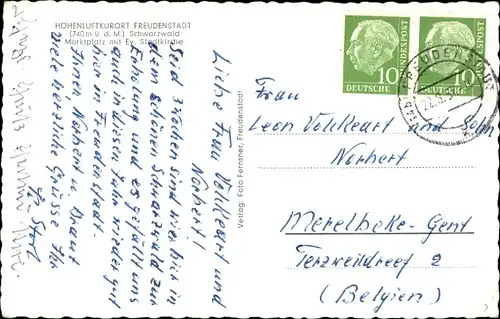 HÖHENLUFTKURORT FREUDENSTADT
(740 m ü. d. M.) Schwarzwald
Marktplatz mit Ev. Stadtkirche
Liebe Frau Volkleart und
Norbert!
Seid 3 Wochen sind wir hier in
dem schönen Schwarzwald zur
Erholung und es gefällt uns
auch in diesem Jahr wieder gut
hier in Freudenstadt.
Ihnen Norbert u. Braut
viele herzliche Grüsse Ihr
Verlag: Foto Fernsner, Freudenstadt
10
DEUTSCHE
BUNDESPOST
10
DEUTSCHE
FREUDENSTADT
Frau
Leon Volkleart und Sohn
Norbert
Merelbeke-Gent
Terzweildreef 2
(Belgien)